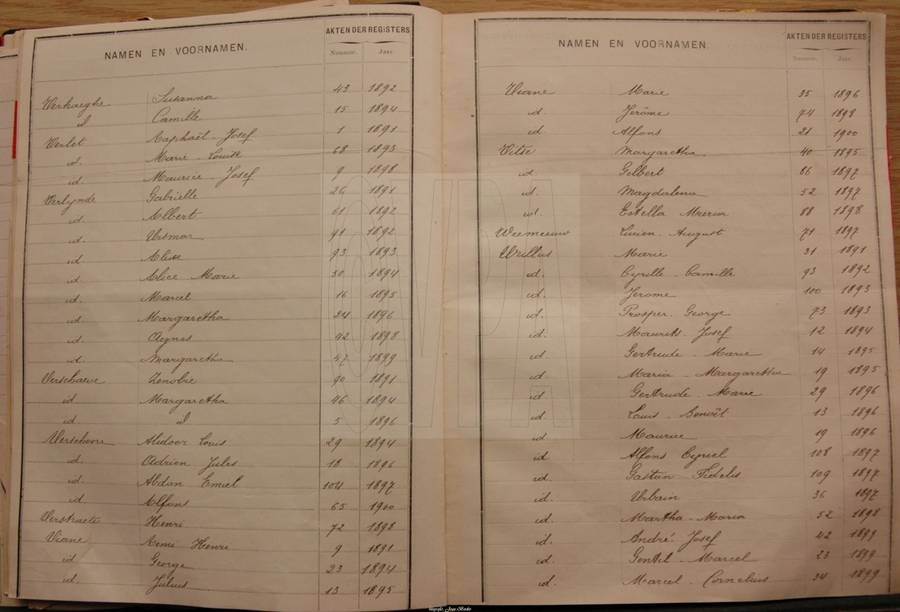 NAMEN EN VOORNAMEN. AKTEN DER REGISTERS
Nummer. Jaar.
Verhaeghe Susanna 43 1892
id Camille 15 1894
Verlet Raphaël-Josef 1 1891
id. Marie-Louise 68 1893
id. Maurice-Josef 9 1898
Verlynde Gabrielle 26 1891
id. Albert 61 1892
id. Ursmar 91 1892
id. Elise 93 1893
id. Alice Marie 30 1894
id. Marcel 16 1895
id. Margaretha 24 1896
id. Agnes 42 1898
id. Margaretha 47 1899
Verschaeve Zenobie 90 1891
id Margaretha 46 1894
id. d 5 1896
Verschoore Alidoor Louis 29 1894
id. Adrien Jules 18 1896
id. Abdon Emiel 104 1897
id. Alfons 65 1900
Verstraete Henri 72 1898
Viane Remi Henri 9 1891
id. George 23 1894
id. Julius 13 1895
NAMEN EN VOORNAMEN. AKTEN DER REGISTERS
Nummer. Jaar.
Viane Marie 35 1896
id. Jerôme 74 1898
id. Alfons 21 1900
Vitse Margaretha 40 1895
id. Gilbert 86 1897
id. Magdalena 52 1897
id. Estella Maria 88 1898
Weemeeuw Lucien-August 71 1897
Wullus Marie 31 1891
id. Cyrille-Camille 93 1892
id. Jerome 100 1893
id. Prosper-George 73 1893
id. Maurits-Josef 12 1894
id Gertrude-Marie 14 1895
id. Maria-Margaretha 19 1895
id Gertrude-Marie 29 1896
id Louis-Benoît 13 1896
id Maurice 19 1896
id. Alfons Cyriel 108 1897
id. Gaston-Fidelis 109 1897
id. Urbain 36 1897
id. Martha-Maria 52 1898
id. André-Josef 42 1899
id. Gentil-Marcel 23 1899
id. Marcel-Cornelius 34 1899